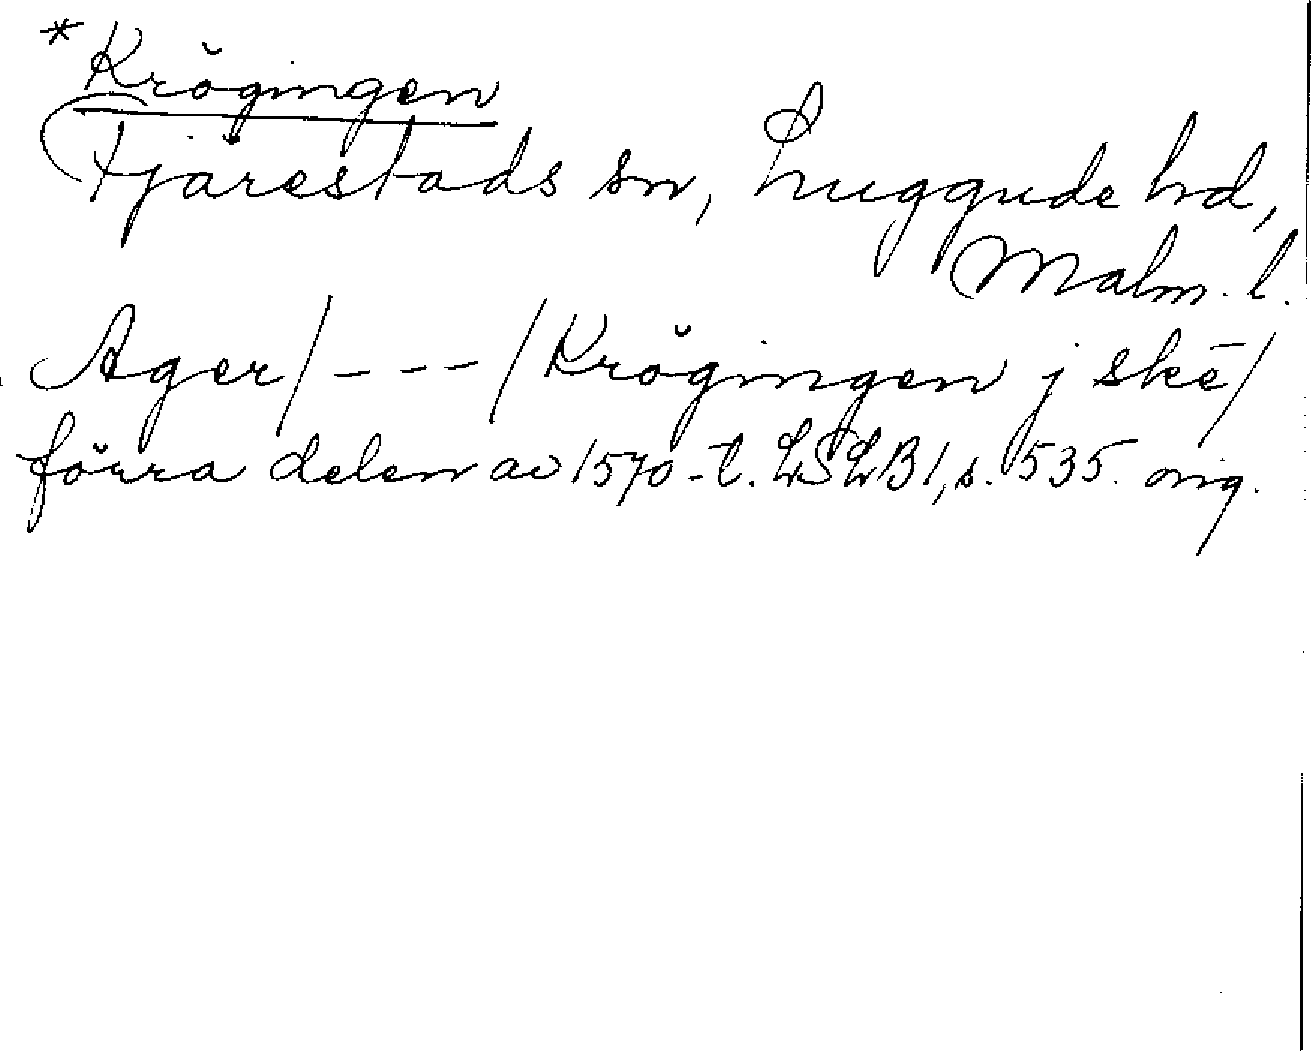 *Krögingen
Fjärestads sn, Luggude hd,
Malm. l.
Ager/---/Krögingen j skē/
förra delen av 1570-t. LSLB1, s. 535. orig.